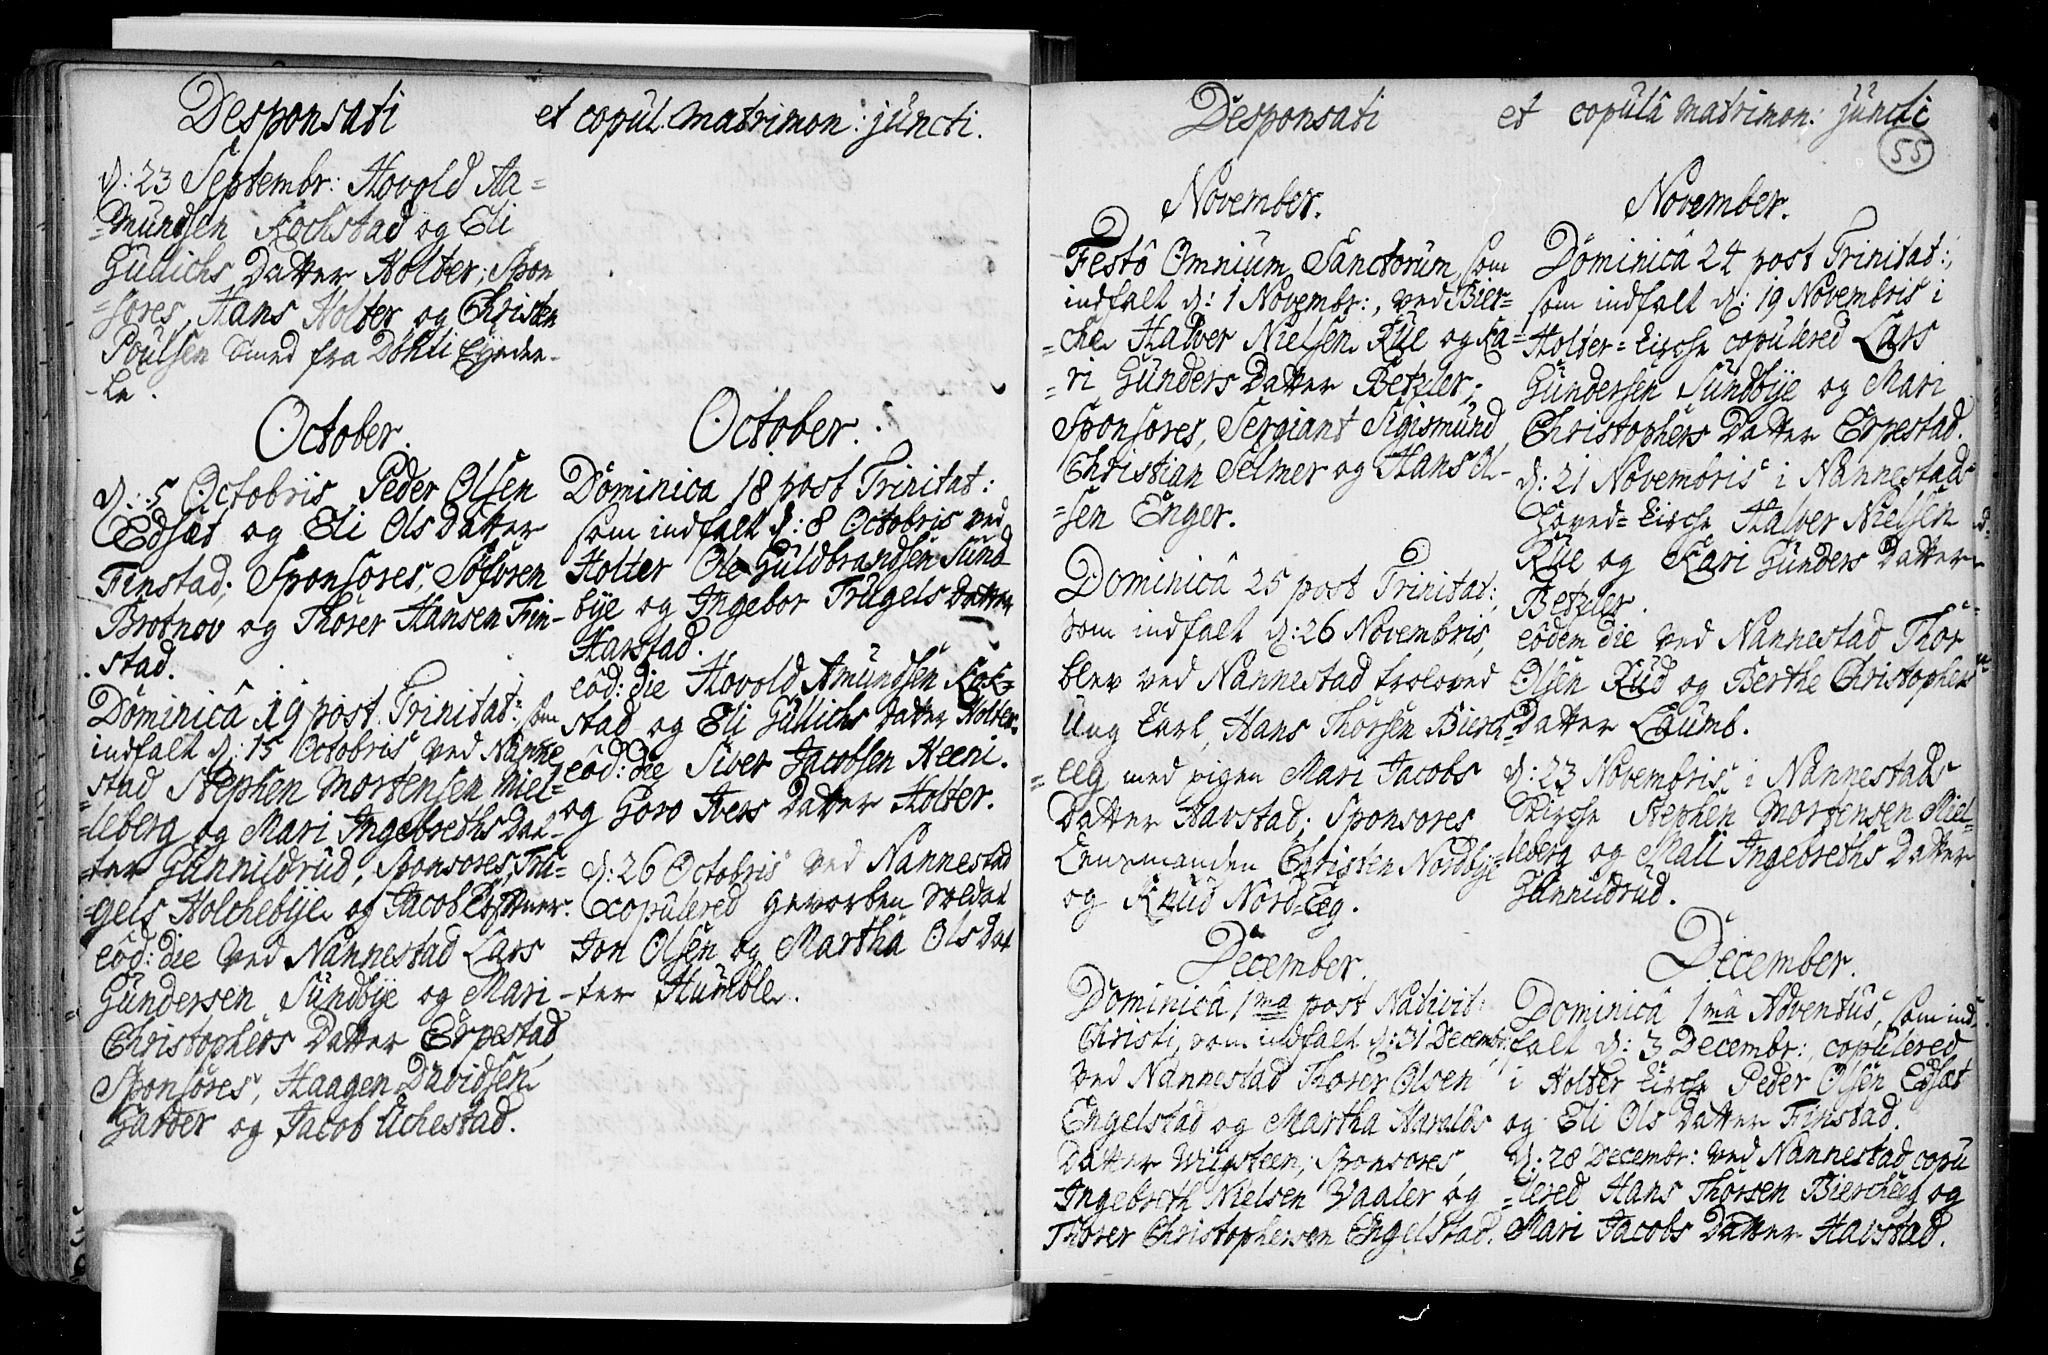 Desponsati et copul. matrimon: juncti.
d: 23 Septembr: Hovold Aa=
=mundsen Kochstad og Eli
Gullichs Datter Holter; Spon
=sores, Hans Holter og Christen
Poulsen Smed fra Dohli
=le.
October.
d: 5 Octobris Peder Olsen
Edsæt og Eli Ols Datter
Finstad; Sponsores, Sofvren
Brotnov og Thorer Hansen Fin-
stad.
Dominicâ 19 post Trinitat: som
indfalt d: 15 Octobris ved Nanne
=stad Stephen Mortensen Miel=
=leberg og Mari Ingebreths Dat-
ter Gunnildrud, Sponsores, Tru-
gels Holchebÿe og Jacob
eôd: die ved Nannestad Lars
Gundersen Sundbye og Mari
Christophers Datter Erpestad
Sponsores, Haagen Davidsen
Garder og Jacob Uchestad.
October.
Dominica 18 post Trinitat:
som indfalt d: 8 Octobris ved
Holter Ole Guldbrandsen Sund
bye og Ingebor Trugels Datter
Harstad.
eôd: die Hovold Amundsen Kok-
stad og Eli Gullichs Datter Holter.
eôd: die Siver Jacobsen Heeni.
og Goro Ivers Datter Holter.
d: 26 Octobris ved Nannestad
copulered gevorben Soldat
Jon Olsen og Martha Ols Dat
-ter Humble.
Desponsati et copulâ matrimon: juncti
55
November.
Festô Omnium Sanctorum, som
indfalt d: 1 Novembr:, ved Bier=
=che Halver Nielsen Rûe og Ka=
=ri Gunders Datter Betzler;
Sponsores, Sergiant Sigismund
Christian Selmer og Hans Ol-
=sen Enger.
Dominicâ 25 post Trinitat:,
som indfalt d: 26 Novembris,
blev ved Nannestad troloved
Ung Karl, Hans Thorsen Bierch
=eeg med pigen Mari Jacobs
Datter Havstad; Sponsores
Lensmanden Christen Nordbÿe
og Knud Nord=Eeg.
December.
Dominicâ 1ma post Nativit:
Christi, som indfalt d: 31 Decembr:
ved Nannestad Thorer Olsen
Engelstad og Martha Haralds
Datter Wiigsteen; Sponsores,
Ingebreth Nielsen Vaaler og
Thorer Christophersen Engelstad.
November.
Dominicâ 24 post Trinitat:,
som indfalt d: 19 Novembris i
Holter=kirche copulered Lars
Gundersen Sundbÿe og Mari
Christophers Datter Erpestad.
d: 21 Novembris i Nannestad
Hoved=kirche Halver Nielsen
Rûe og Kari Gunders Datter
Betzler.
eôdem die ved Nannestad Thor
Olsen Rud og Berthe Christophers
Datter Laumb.
d: 23 Novembris i Nannestads
Kirche Stephen Mortensen Miel=
=leberg og Mali Ingebreths Datter
Gunnildrud.
December.
Dominicâ 1mâ Adventus, som ind
falt d: 3 Decembr:, copulered
i Holter kirche Peder Olsen Edsæt
og Eli Ols Datter Finstad.
d: 28 Decembr: ved Nannestad copu
=lered Hans Thorsen Biercheeg og
Mari Jacobs Datter Havstad.